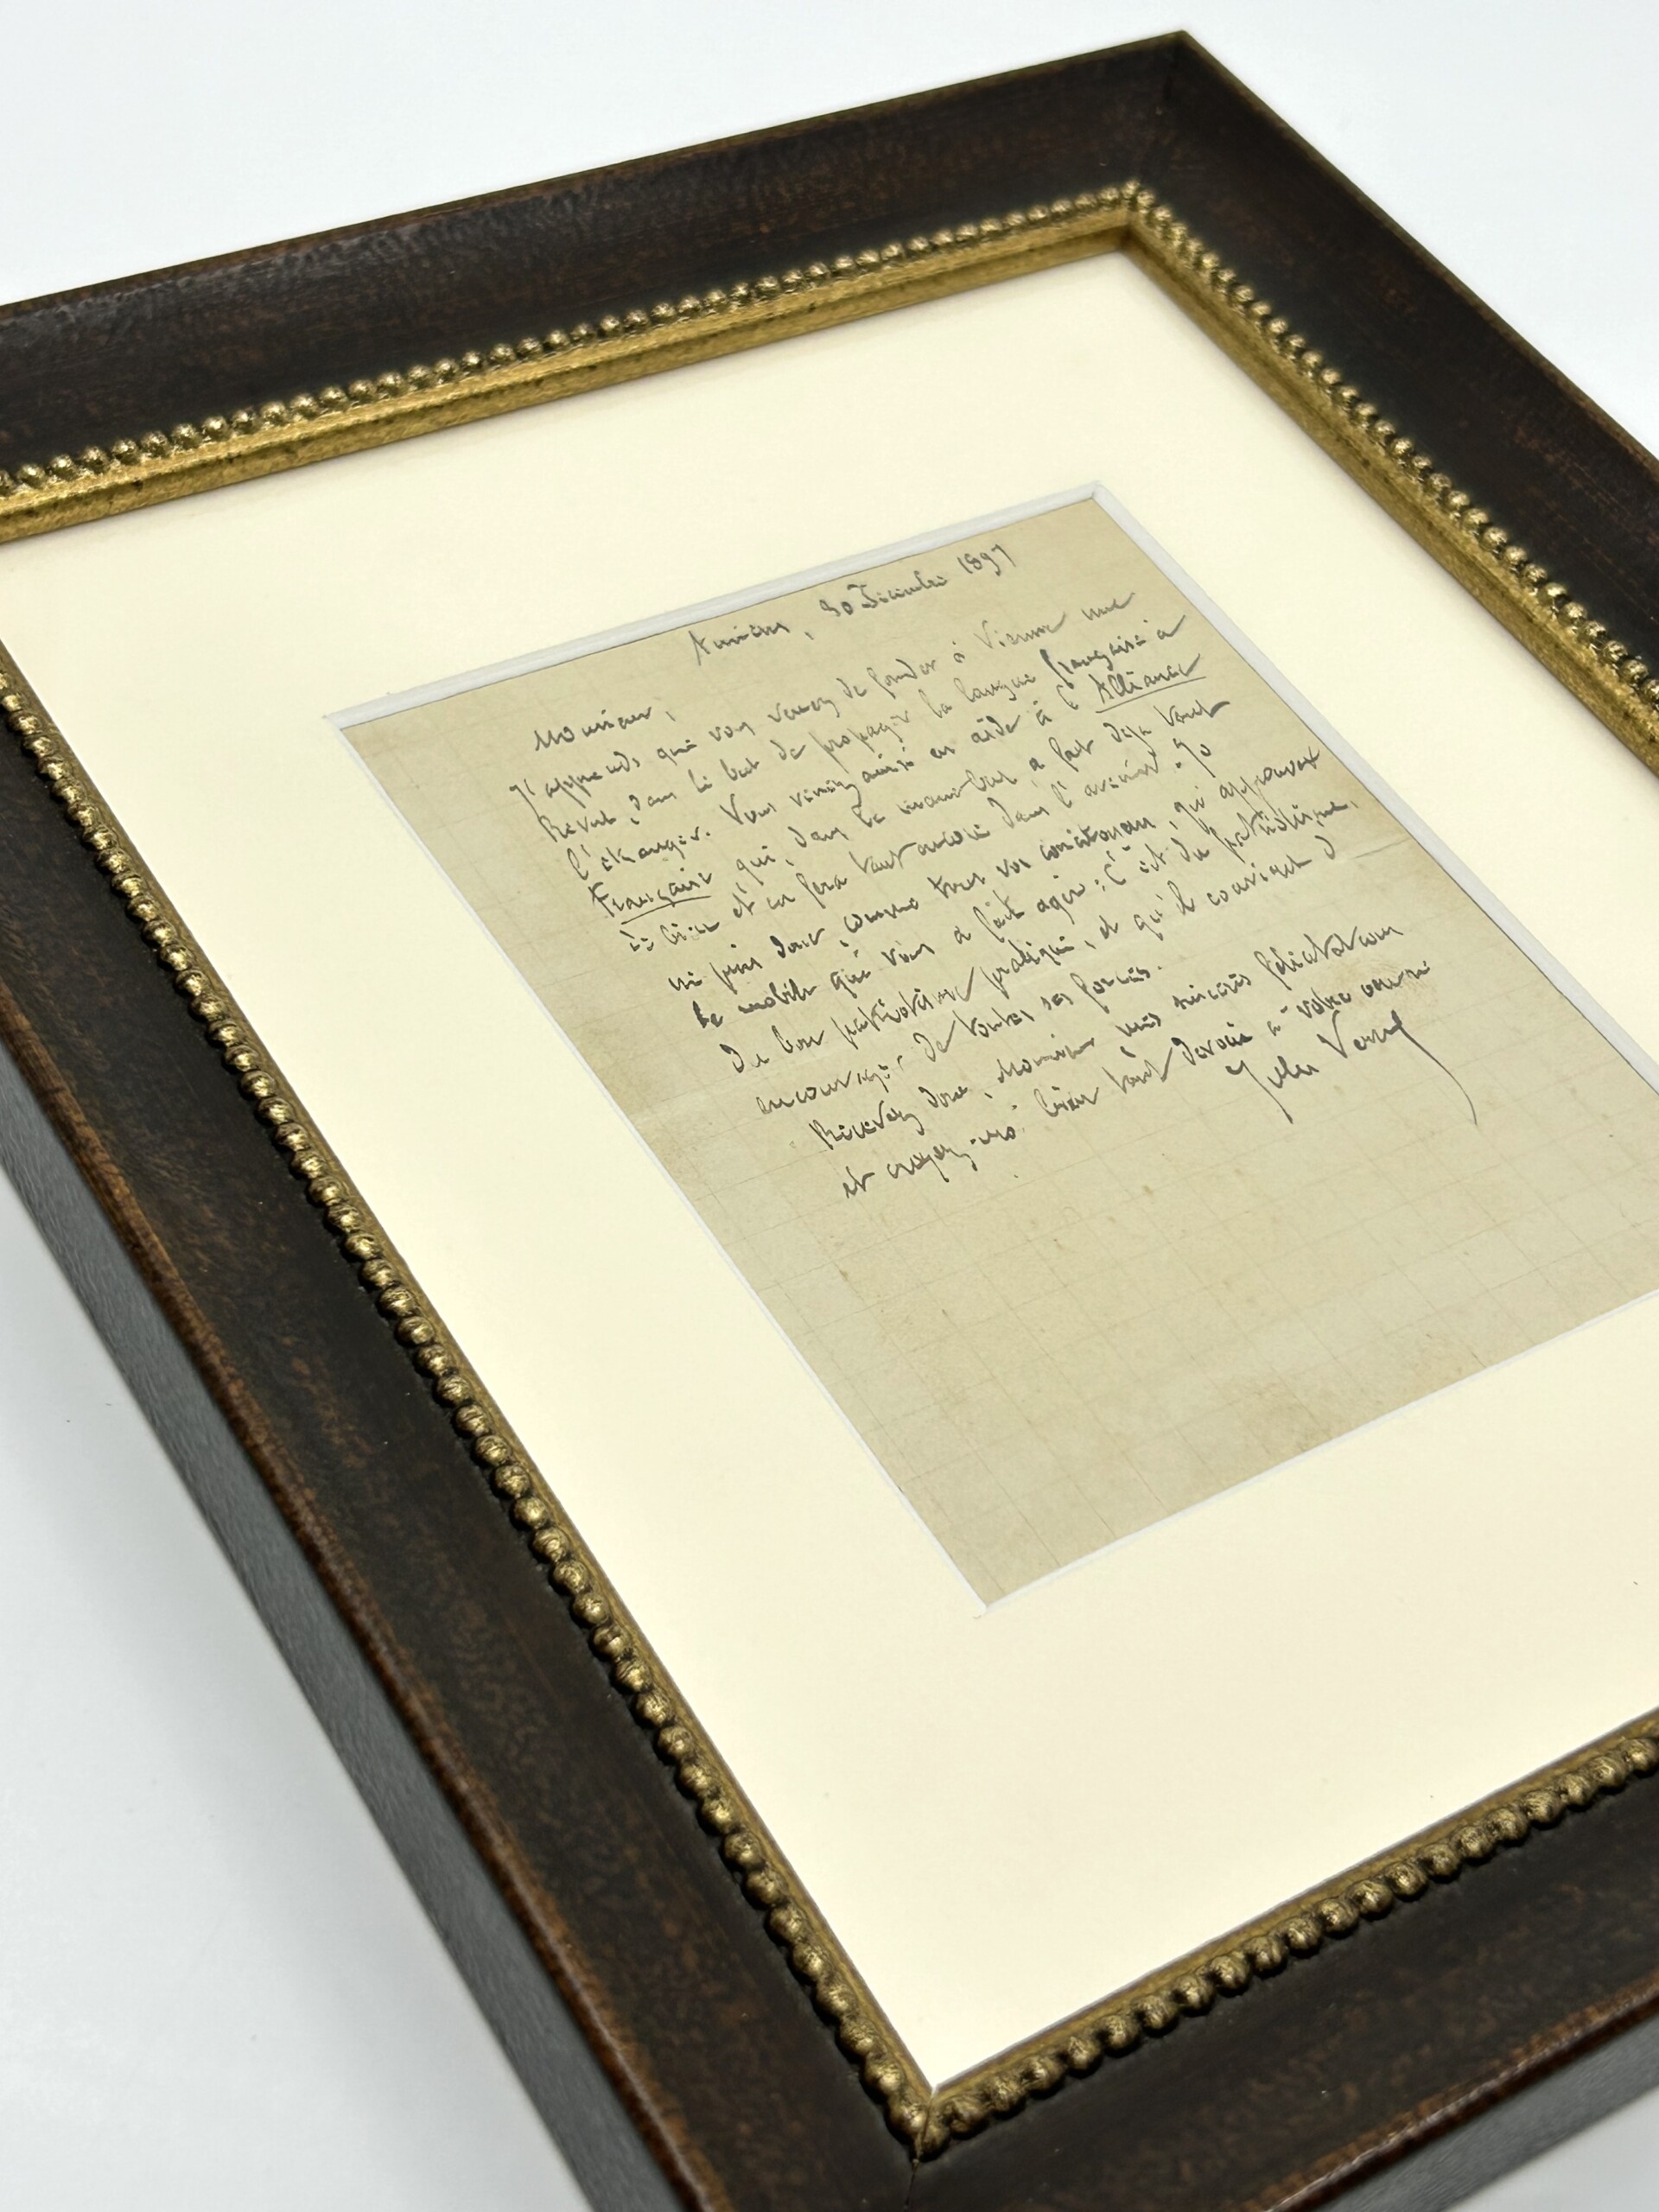 Amiens, 30 Décembre 1897
Monsieur,
J'apprends que vous venez de fonder à Vienne une
Revue, dans le but de propager la langue française à
l'étranger. Vous venez ainsi en aide à l'Alliance
Française qui, dans le même but, a fait déjà tant
de bien et en fera tant encore dans l'avenir. Je
ne puis donc, comme tous vos concitoyens, qu'approuver
le mobile qui vous a fait agir : C'est du patriotisme,
du bon patriotisme pratique, et qu'il convient d'
encourager de toutes ses forces.
Recevez donc, Monsieur mes sincères félicitations
et croyez-moi bien tout dévoué à votre œuvre
Jules Verne